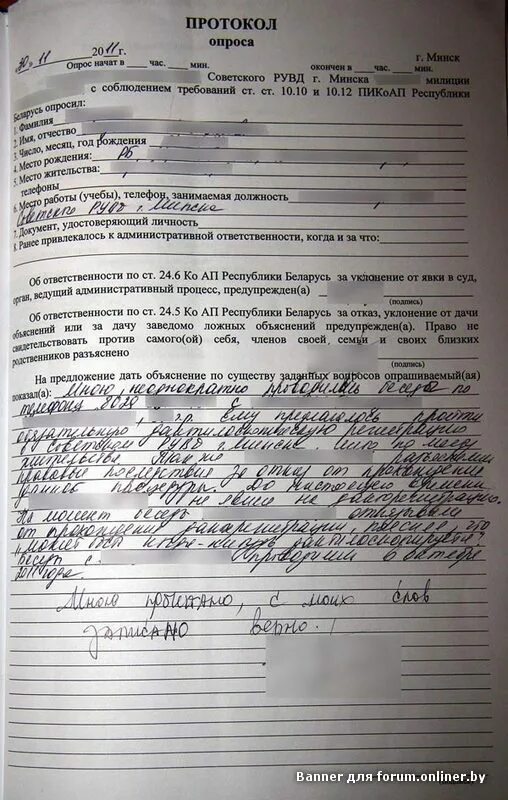 ПРОТОКОЛ
опроса
30. 11 2011 г. г. Минск
Опрос начат в час. мин. окончен в час. мин.
Советского РУВД г. Минска милиции
с соблюдением требований ст. ст. 10.10 и 10.12 ПИКоАП Республики
Беларусь опросил:
1. Фамилия
2. Имя, отчество
3. Число, месяц, год рождения
4. Место рождения: РБ
5. Место жительства:
телефоны
6. Место работы (учебы), телефон, занимаемая должность
Советского РУВД г. Минска
7. Документ, удостоверяющий личность
8. Ранее привлекалось к административной ответственности, когда и за что:
Об ответственности по ст. 24.6 Ко АП Республики Беларусь за уклонение от явки в суд,
орган, ведущий административный процесс, предупрежден(а)
(подпись)
Об ответственности по ст. 24.5 Ко АП Республики Беларусь за отказ, уклонение от дачи
объяснений или за дачу заведомо ложных объяснений предупрежден(а). Право не
свидетельствовать против самого(ой) себя, членов своей семьи и своих близких
родственников разъяснено
(подпись)
На предложение дать объяснение по существу заданных вопросов опрашиваемый(ая)
показал(а): Мною неоднократно проводились беседы по
телефону 8029 с
Ему предлагалось пройти
обязательную дактилоскопическую регистрацию
в Советском РУВД г. Минска либо по месту
жительства. Также разъяснены
правовые последствия за отказ от прохождения
данной процедуры. До настоящего времени
не явился на дакторегистрацию.
На момент беседы отказывался
от прохождения дакторегистрации, поясняя что
Беседы с проводились 6 октября
2011 года.
Мною прочитано, с моих слов
записано верно.
Banner для forum.onliner.by